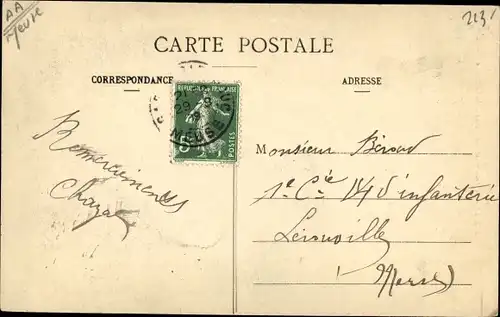 AA
Meuse
213/
CARTE POSTALE
CORRESPONDANCE
ADRESSE
REPUBLIQUE FRANÇAISE
5
POSTES
MEUSE
Remerciements
Monsieur
1e Cie 154 d'infanterie
Lérouville
Meuse